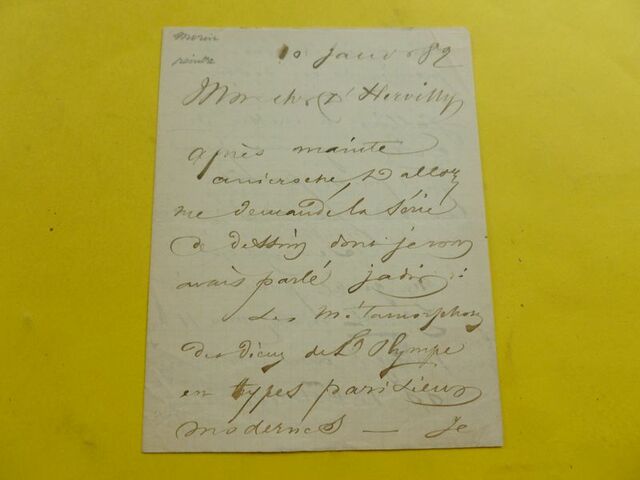 Morin
peintre
10 Janv 82
Mon cher d'Hervilly
après mainte
anicroche, Dalloz
me demande la série
de dessins dont je vous
avais parlé jadis :
Les Métamorphoses
des dieux de L'Olympe
en types parisiens
modernes — Je